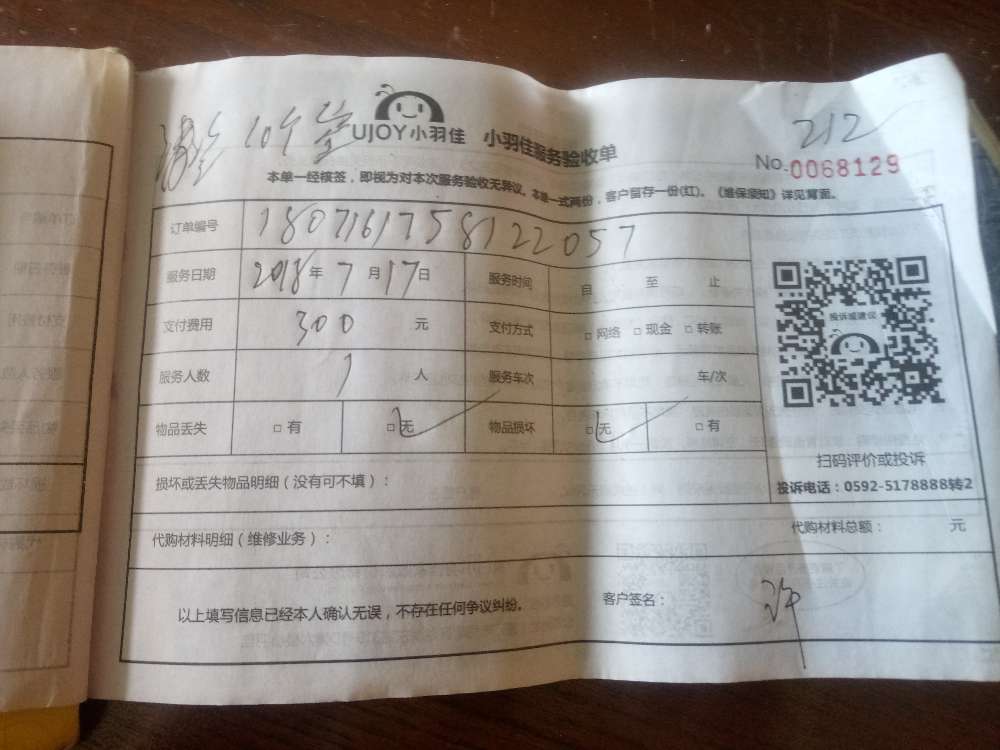 UJOY小羽佳 小羽佳服务验收单
10个
212
No.0068129
本单一经核签，即视为对本次服务验收无异议。本单一式两份，客户留存一份(红)。《维保须知》详见背面。
订单编号 1807161758122057
服务日期 2018年7月17日 服务时间 自 至 止
支付费用 300 元 支付方式 □ 网络 □ 现金 □ 转账
服务人数 1 人 服务车次 车/次
物品丢失 □ 有 □ 无 物品损坏 □ 无 □ 有
投诉或建议
扫码评价或投诉
投诉电话：0592-5178888转2
损坏或丢失物品明细（没有可不填）：
代购材料明细（维修业务）： 代购材料总额： 元
以上填写信息已经本人确认无误，不存在任何争议纠纷。 客户签名： 许